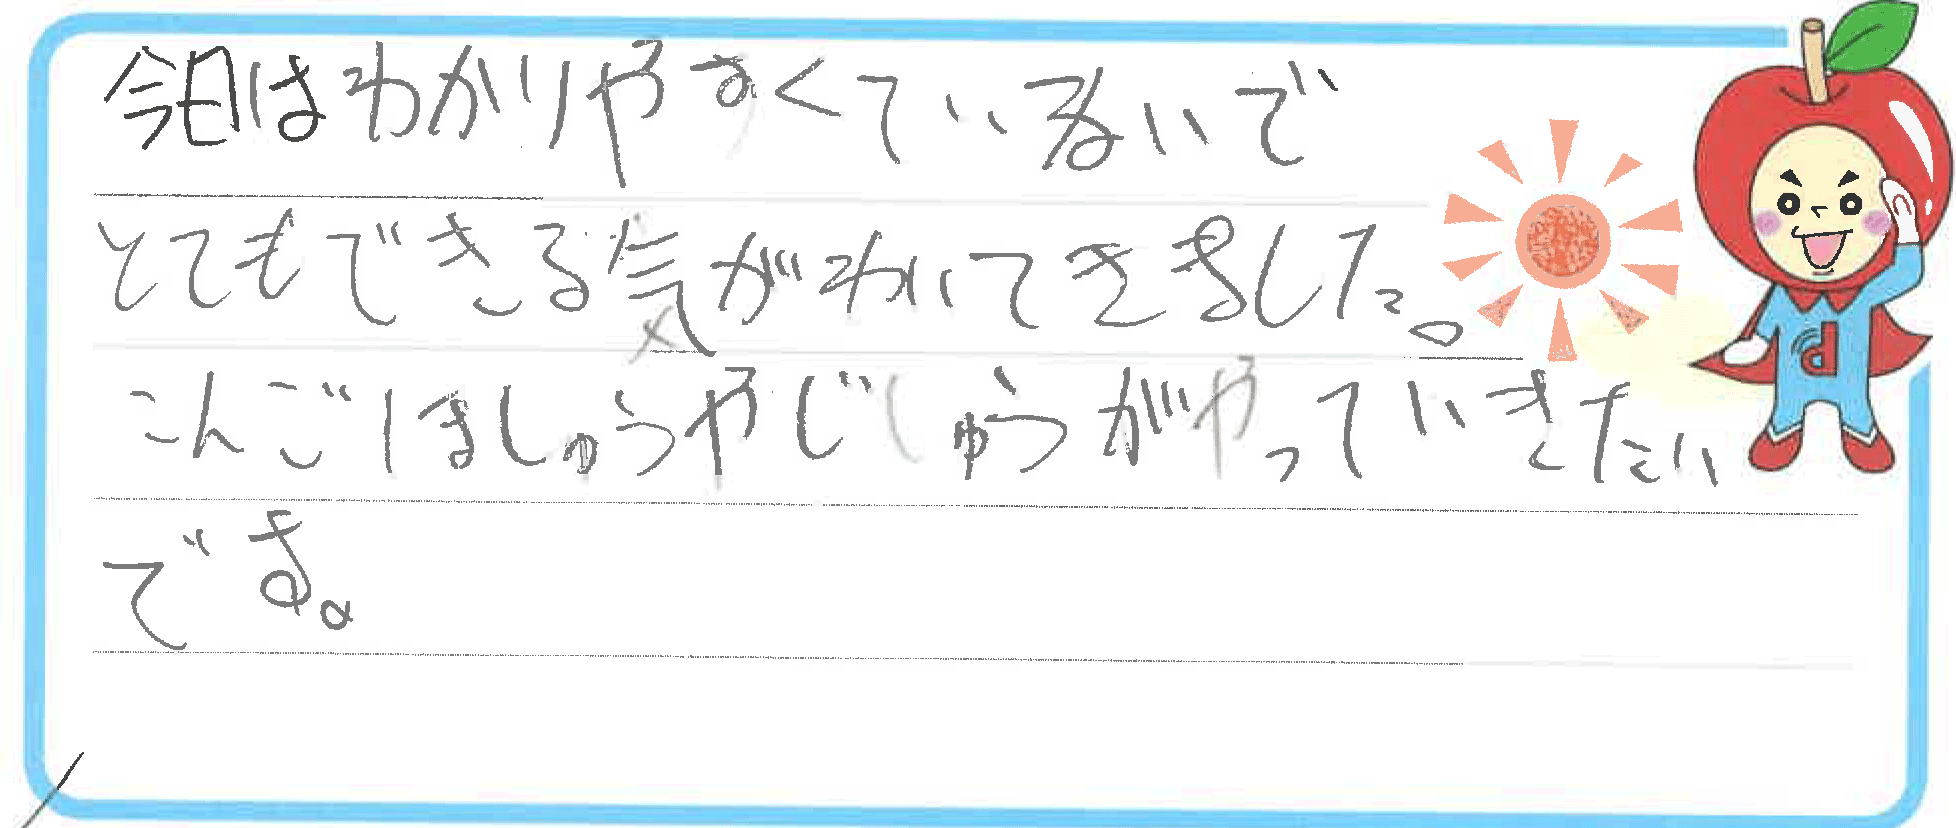 今日はわかりやすくていねいで
とてもできる気がわいてきました。
こんごほしゅうやじしゅうがやっていきたい
です。